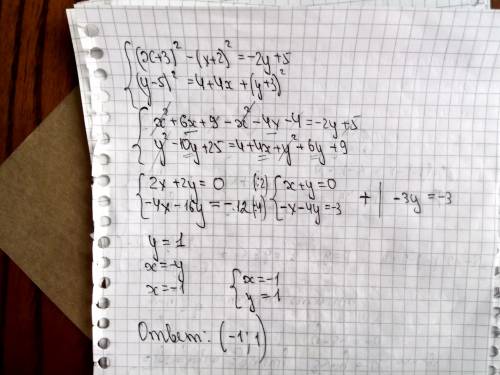 {(x+3)² - (x+2)² = -2y+5
(y-5)² = 4+4x+(y+3)²
{x²+6x+9-x²-4x-4=-2y+5
y²-10y+25=4+4x+y²+6y+9
{2x+2y=0 (:2) {x+y=0
-4x-16y=-12(:4) -x-4y=-3 + | -3y=-3
y=1
x=-y
x=-1 {x=-1
y=1
Ответ: (-1; 1)